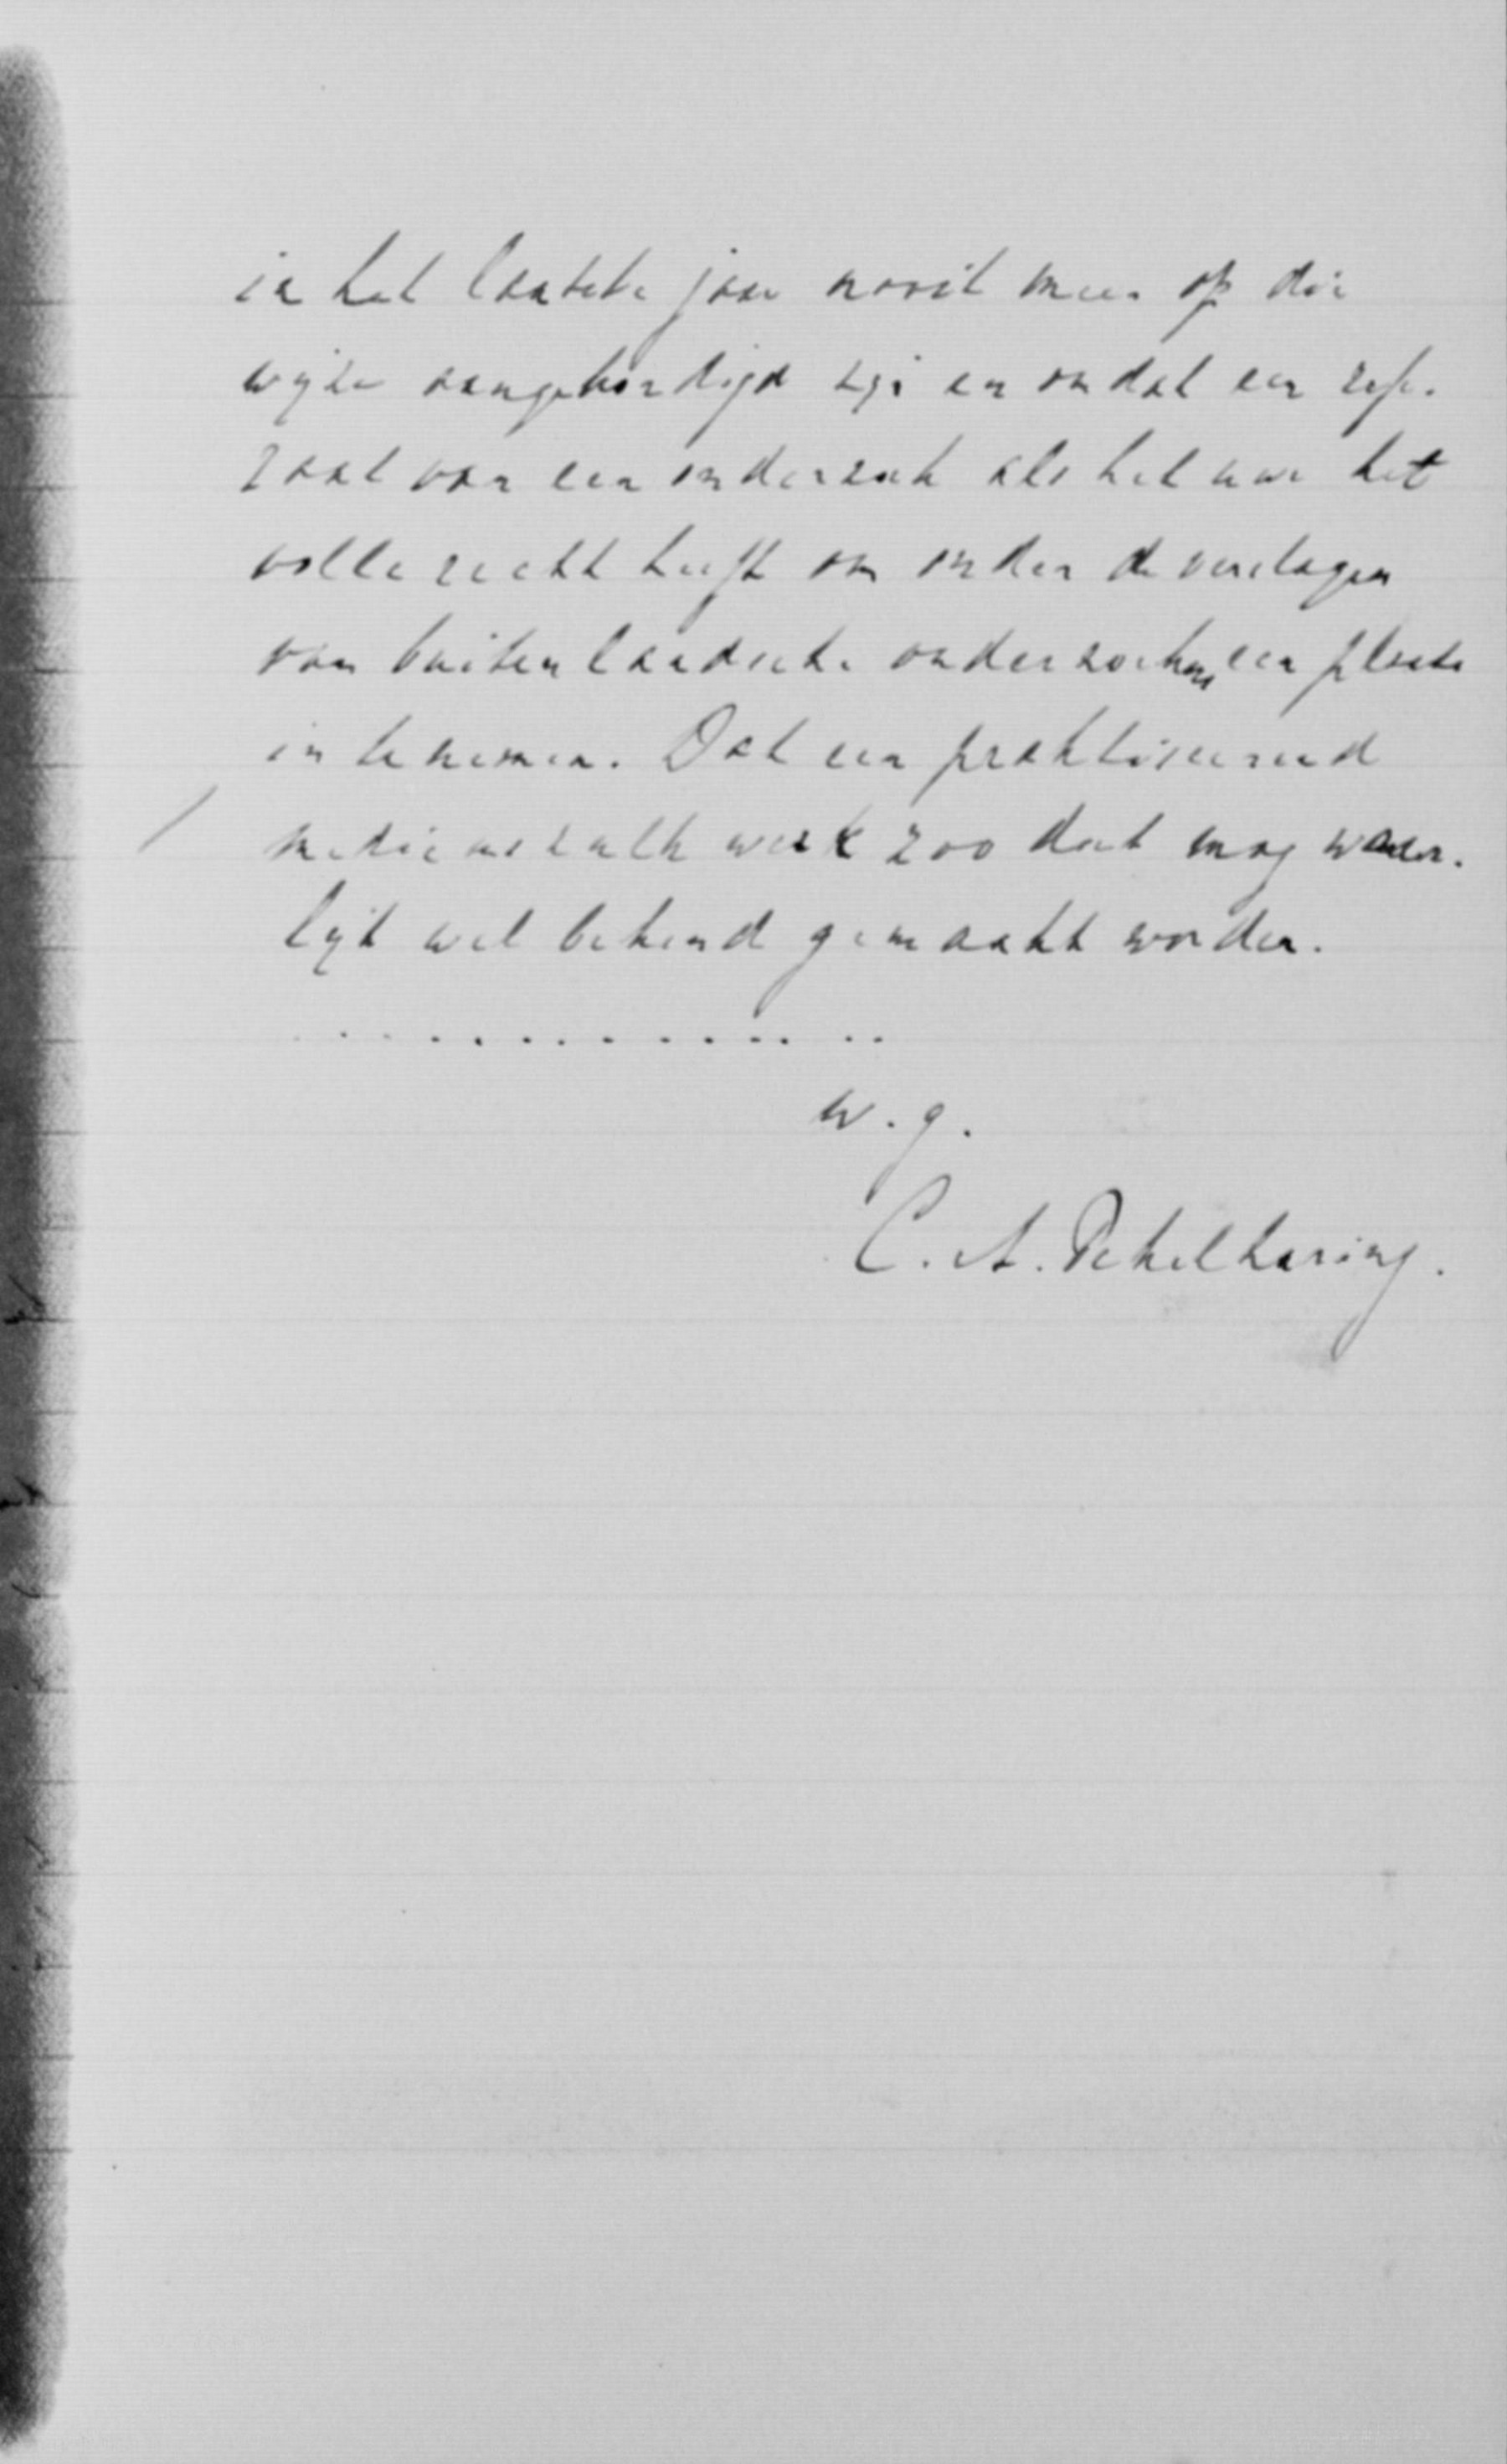 in het laatste jaar nooit meer op die
wijze aangekondigd zijn en omdat een refe-
raat van een onderzoek als het uwe het
volle recht heeft om onder de verslagen
van buitenlandsche onderzoekingen een plaats
in te nemen. Dat een praktiseerend
medicus zulk werk zoo doet mag waar-
lijk wel bekend gemaakt worden.
. . . . . . . . . . . . . .
w.g.
C. A. Pekelharing.